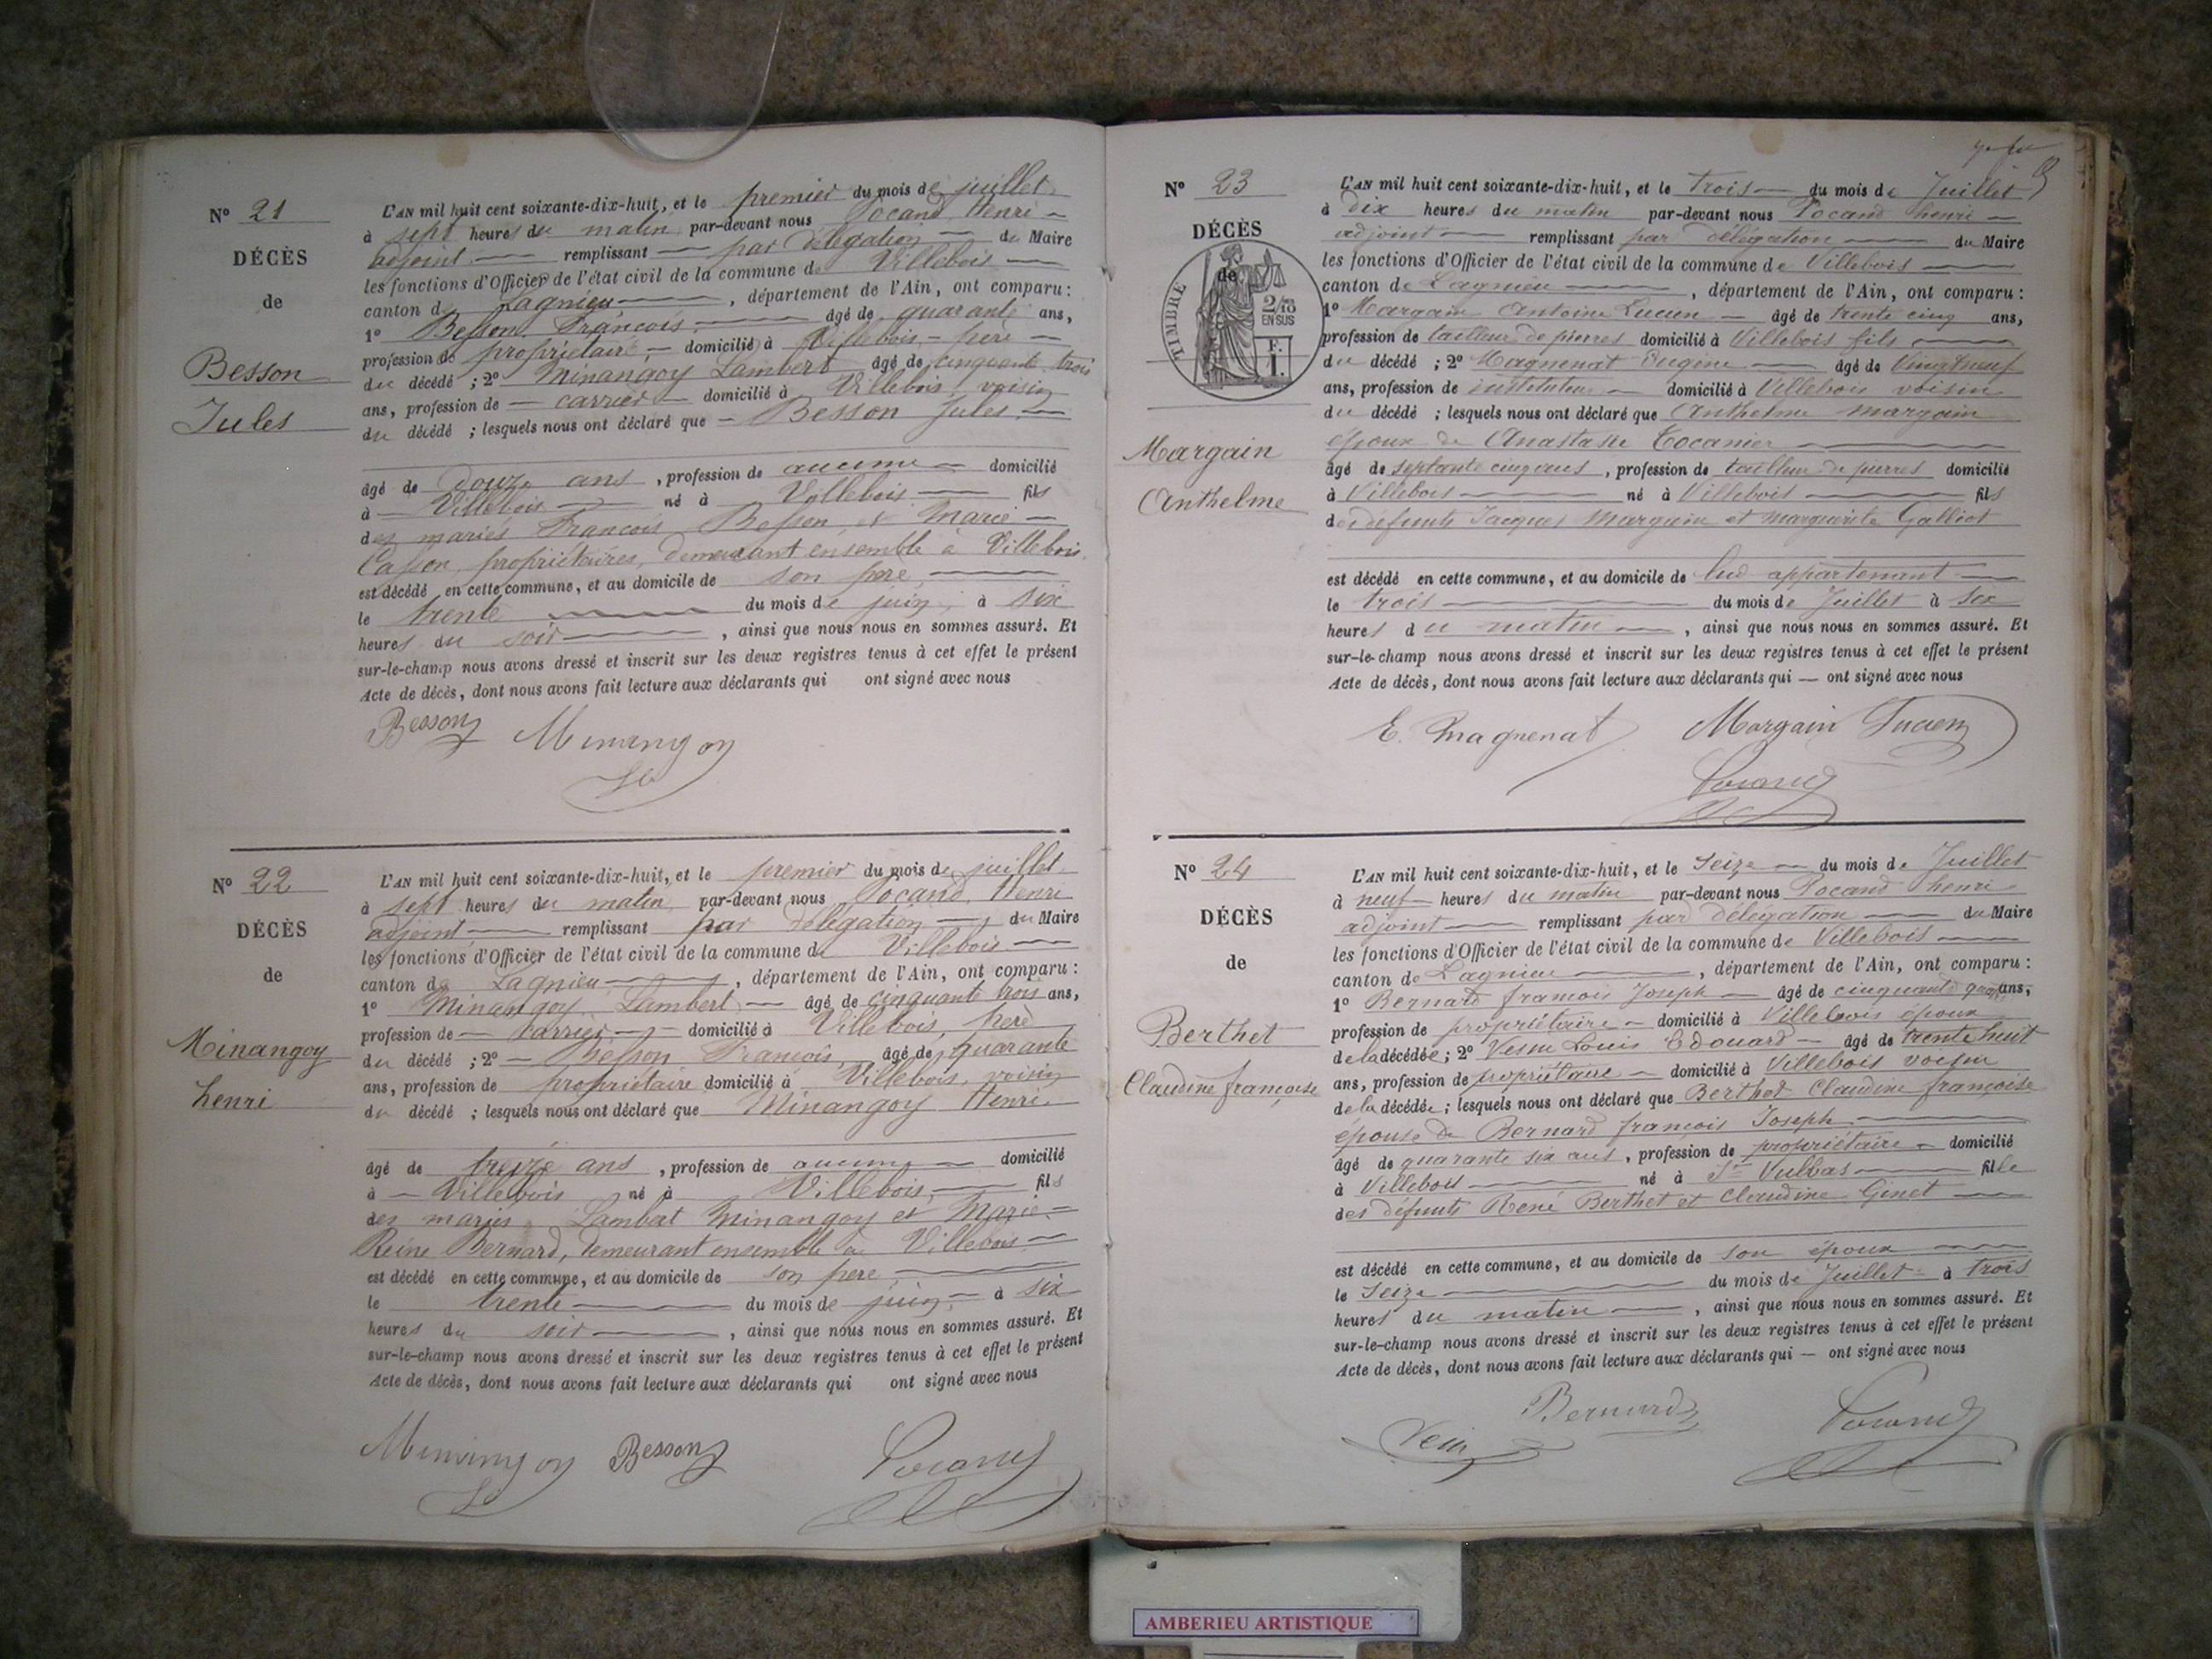 N° 21
DÉCÈS
de
Besson
Jules
L'AN mil huit cent soixante-dix-huit, et le premier du mois de juillet
à sept heures du matin par-devant nous Pocand Henri
adjoint remplissant par délégation du Maire
les fonctions d'Officier de l'état civil de la commune de Villebois
canton de Lagnieu, département de l'Ain, ont comparu :
1° Besson François âgé de quarante ans,
profession de propriétaire, domicilié à Villebois - père
du décédé ; 2° Minangoy Lambert âgé de cinquante trois
ans, profession de carrier domicilié à Villebois, voisin
du décédé ; lesquels nous ont déclaré que Besson Jules
âgé de douze ans, profession de aucune domicilié
à Villebois né à Villebois fils
des mariés François Besson et Marie
Casson, propriétaires, demeurant ensemble à Villebois
est décédé en cette commune, et au domicile de son père,
le trente du mois de juin, à six
heures du soir, ainsi que nous nous en sommes assuré. Et
sur-le-champ nous avons dressé et inscrit sur les deux registres tenus à cet effet le présent
Acte de décès, dont nous avons fait lecture aux déclarants qui ont signé avec nous
Besson Minangoy
N° 22
DÉCÈS
de
Minangoy
henri
L'AN mil huit cent soixante-dix-huit, et le premier du mois de juillet
à sept heures du matin par-devant nous Pocand Henri
adjoint remplissant par délégation, du Maire
les fonctions d'Officier de l'état civil de la commune de Villebois
canton de Lagnieu, département de l'Ain, ont comparu :
1° Minangoy Lambert âgé de cinquante trois ans,
profession de carrier domicilié à Villebois, père
du décédé ; 2° Besson François, âgé de quarante
ans, profession de propriétaire domicilié à Villebois, voisin
du décédé ; lesquels nous ont déclaré que Minangoy Henri
âgé de treize ans, profession de aucune domicilié
à Villebois né à Villebois, fils
des mariés Lambert Minangoy et Marie
Reine Bernard, demeurant ensemble à Villebois
est décédé en cette commune, et au domicile de son père,
le trente du mois de juin, à six
heures du soir, ainsi que nous nous en sommes assuré. Et
sur-le-champ nous avons dressé et inscrit sur les deux registres tenus à cet effet le présent
Acte de décès, dont nous avons fait lecture aux déclarants qui ont signé avec nous
Minangoy Besson Pocand
N° 23
DÉCÈS
de
TIMBRE
2/10
EN SUS
F.
1.
Margain
Anthelme
L'AN mil huit cent soixante-dix-huit, et le trois du mois de Juillet
à dix heures du matin par-devant nous Pocand henri
adjoint remplissant par délégation du Maire
les fonctions d'Officier de l'état civil de la commune de Villebois
canton de Lagnieu, département de l'Ain, ont comparu :
1° Margain Antoine Lucien âgé de trente cinq ans,
profession de tailleur de pierres domicilié à Villebois fils
du décédé ; 2° Magnenat Eugène âgé de vingt neuf
ans, profession de instituteur domicilié à Villebois voisin
du décédé ; lesquels nous ont déclaré que Anthelme margain
époux de Anastasie Tocanier
âgé de septante cinq ans, profession de tailleur de pierres domicilié
à Villebois né à Villebois fils
des défunts Jacques Margain et marguerite Galliot
est décédé en cette commune, et au domicile de lui appartenant
le trois du mois de Juillet à six
heures du matin, ainsi que nous nous en sommes assuré. Et
sur-le-champ nous avons dressé et inscrit sur les deux registres tenus à cet effet le présent
Acte de décès, dont nous avons fait lecture aux déclarants qui — ont signé avec nous
E. Magnenat Margain Lucien
Pocand
N° 24
DÉCÈS
de
Berthet
Claudine françoise
L'AN mil huit cent soixante-dix-huit, et le seize du mois de Juillet
à neuf heures du matin par-devant nous Pocand henri
adjoint remplissant par délégation du Maire
les fonctions d'Officier de l'état civil de la commune de Villebois
canton de Lagnieu, département de l'Ain, ont comparu :
1° Bernard francois Joseph âgé de cinquante quatre ans,
profession de propriétaire domicilié à Villebois époux
de la décédée ; 2° Vesin Louis Edouard âgé de trente huit
ans, profession de propriétaire domicilié à Villebois voisin
de la décédée ; lesquels nous ont déclaré que Berthet Claudine françoise
épouse de Bernard francois Joseph
âgé de quarante six ans, profession de propriétaire domicilié
à Villebois né à St Vulbas fille
des défunts René Berthet et Claudine Ginet
est décédé en cette commune, et au domicile de son époux
le seize du mois de Juillet à trois
heures du matin, ainsi que nous nous en sommes assuré. Et
sur-le-champ nous avons dressé et inscrit sur les deux registres tenus à cet effet le présent
Acte de décès, dont nous avons fait lecture aux déclarants qui — ont signé avec nous
Vesin Bernard Pocand
AMBERIEU ARTISTIQUE